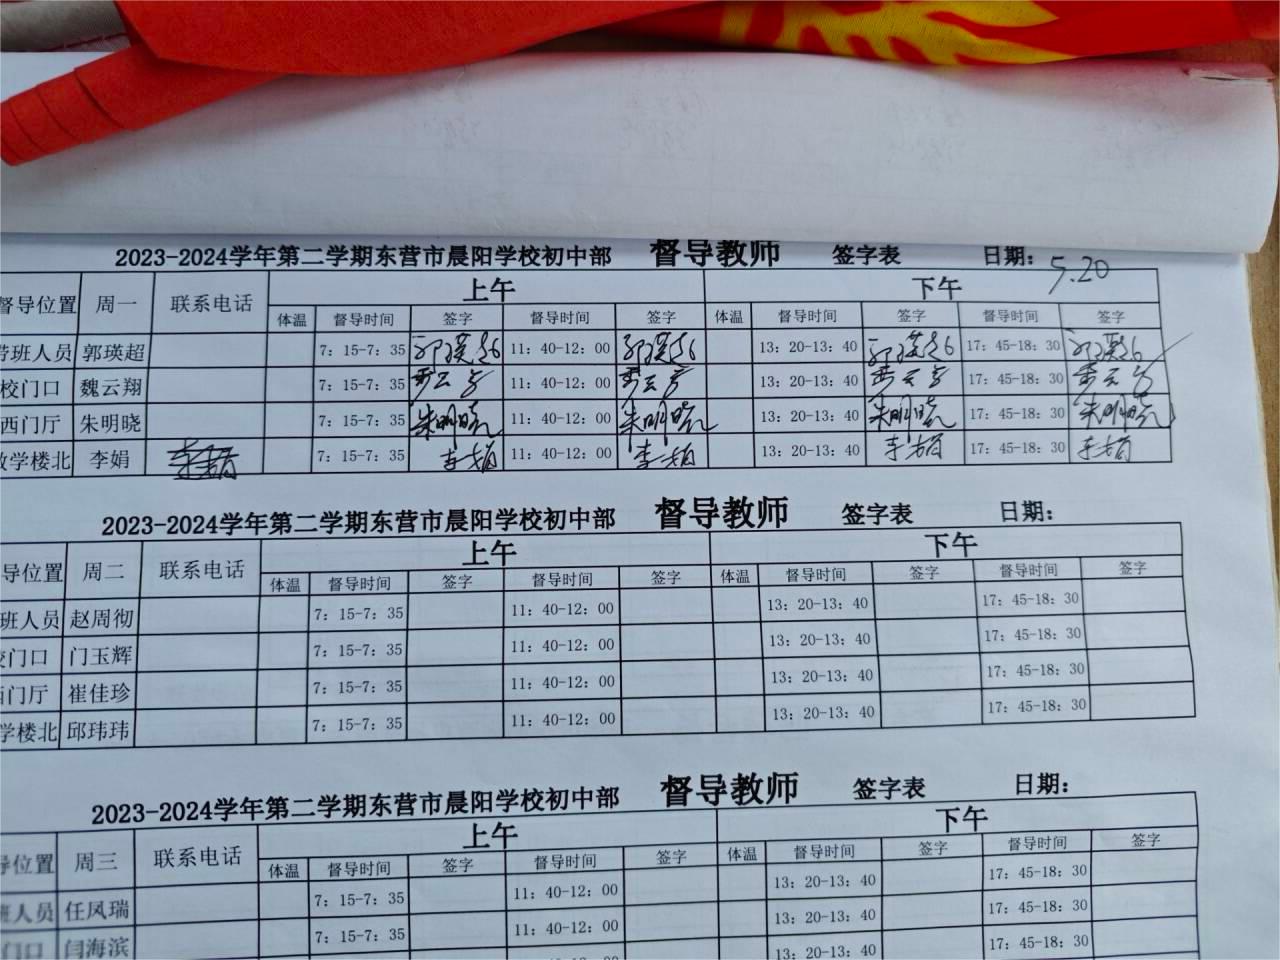 2023-2024学年第二学期东营市晨阳学校初中部 督导教师 签字表 日期: 5.20
督导位置 周一 联系电话 上午 下午
体温 督导时间 签字 督导时间 签字 体温 督导时间 签字 督导时间 签字
带班人员 郭瑛超 7: 15-7: 35 郭瑛超 11: 40-12: 00 郭瑛超 13: 20-13: 40 郭瑛超 17: 45-18: 30 郭瑛超
校门口 魏云翔 7: 15-7: 35 11: 40-12: 00 13: 20-13: 40 17: 45-18: 30
西门厅 朱明晓 7: 15-7: 35 朱明晓 11: 40-12: 00 朱明晓 13: 20-13: 40 朱明晓 17: 45-18: 30 朱明晓
教学楼北 李娟 李娟 7: 15-7: 35 李娟 11: 40-12: 00 李娟 13: 20-13: 40 李娟 17: 45-18: 30 李娟
2023-2024学年第二学期东营市晨阳学校初中部 督导教师 签字表 日期:
导位置 周二 联系电话 上午 下午
体温 督导时间 签字 督导时间 签字 体温 督导时间 签字 督导时间 签字
班人员 赵周彻 7: 15-7: 35 11: 40-12: 00 13: 20-13: 40 17: 45-18: 30
校门口 门玉辉 7: 15-7: 35 11: 40-12: 00 13: 20-13: 40 17: 45-18: 30
西门厅 崔佳珍 7: 15-7: 35 11: 40-12: 00 13: 20-13: 40 17: 45-18: 30
学楼北 邱玮玮 7: 15-7: 35 11: 40-12: 00 13: 20-13: 40 17: 45-18: 30
2023-2024学年第二学期东营市晨阳学校初中部 督导教师 签字表 日期:
导位置 周三 联系电话 上午 下午
体温 督导时间 签字 督导时间 签字 体温 督导时间 签字 督导时间 签字
班人员 任凤瑞 7: 15-7: 35 11: 40-12: 00 13: 20-13: 40 17: 45-18: 30
门口 闫海滨 7: 15-7: 35 11: 40-12: 00 13: 20-13: 40 17: 45-18: 30